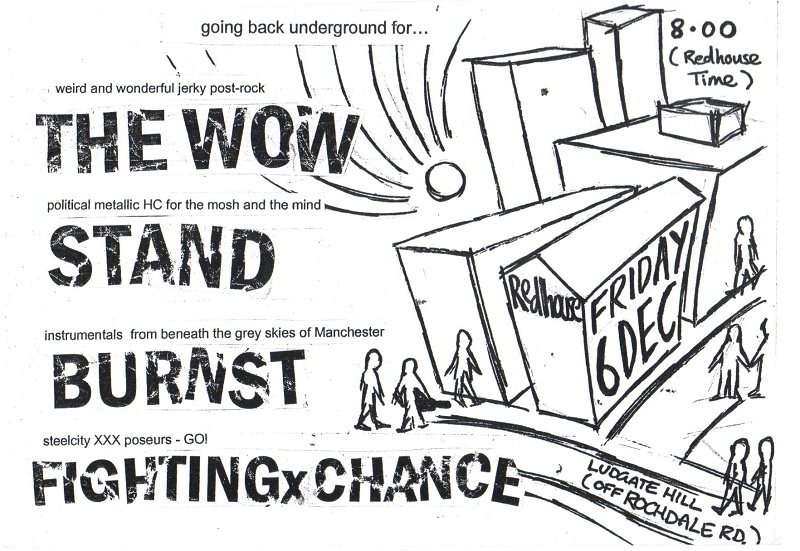 going back underground for...
8.00
(Redhouse
Time)
weird and wonderful jerky post-rock
THE WOW
political metallic HC for the mosh and the mind
STAND
Redhouse
FRIDAY
6 DEC
instrumentals from beneath the grey skies of Manchester
BURNST
steelcity XXX poseurs - GO!
FIGHTINGxCHANCE
LUDGATE HILL
(OFF ROCHDALE RD.)